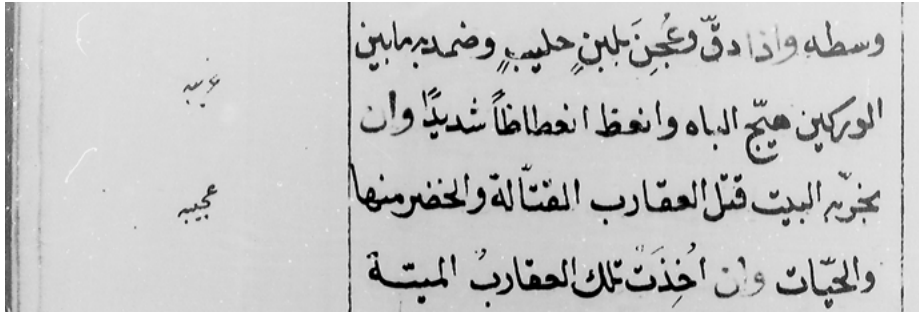 وسطه واذا دقّ وعُجِنَ بلبنٍ حليبٍ وضمد به ما بين
الوركين هيّج الباه وانعظ انعطاظاً شديدًا وان
غريبه
بخر به البيت قتل العقارب القتّالة والخضر منها
عجيبه
والحيّات وان اُخِذَتْ تلك العقاربُ الميتة